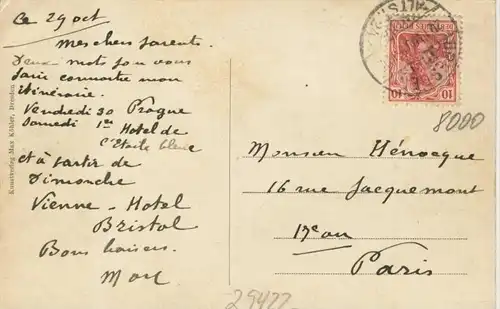 Ce 29 oct
Mes chers parents.
Deux mots pour vous
faire connaitre mon
itinéraire.
Vendredi 30 Prague
Samedi 1er Hotel de
l'Etoile bleue
et à partir de
Dimanche
Vienne - Hotel
Bristol
Bons baisers.
Kunstverlag Max Köhler, Dresden
10 10
8000
Monsieur Hénocque
16 rue Jacquemont
17e arr
Paris
29422